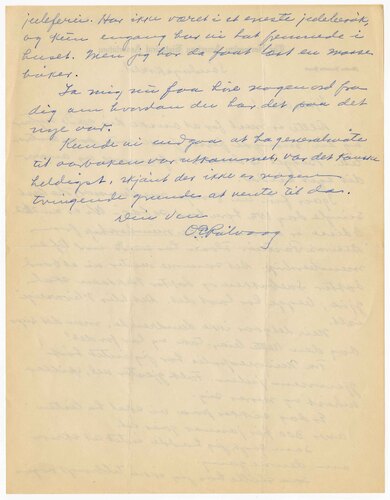 juleferie. Har ikke været i et eneste juleselskap,
og kun engang har vi hat fremmede i
huset. Men jeg har da faat læst en masse
bøker.
La mig nu faa høre nogen ord fra
dig om hvordan du har det paa det
nye aar.
Kunde vi undgaa at ha generalmøte
til vorboken var utkommet, var det kanske
heldigst, skjønt der ikke er nogen
tvingende grunder at vente til da.
Din ven
O E Rölvaag